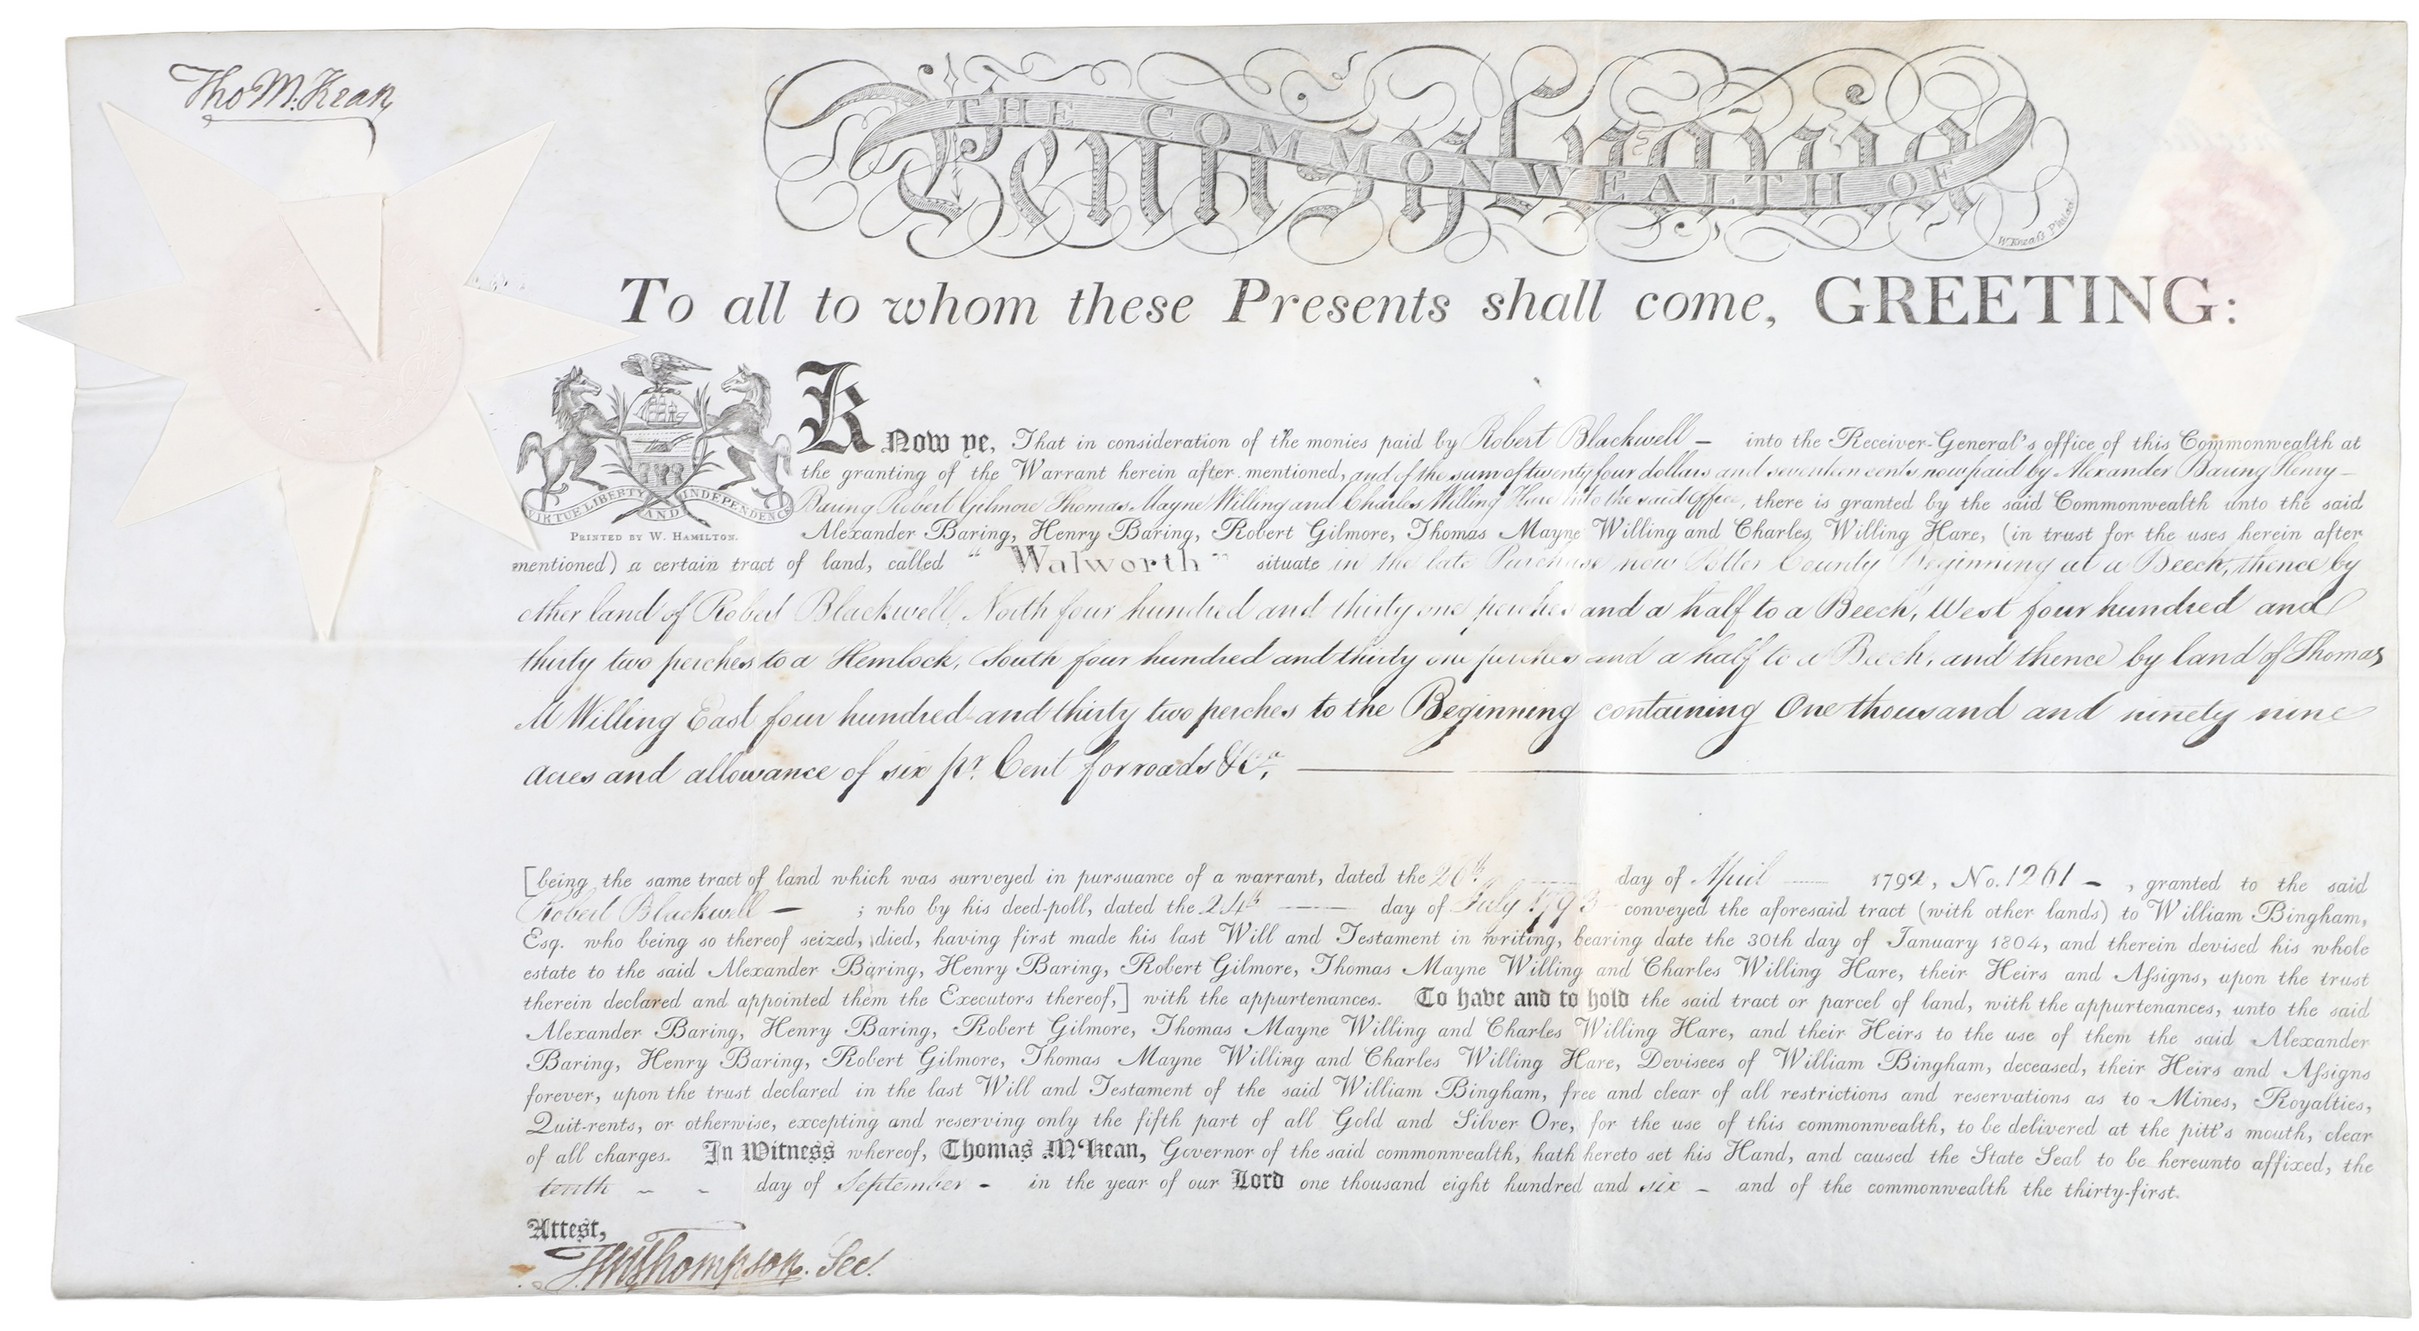 Tho M:Kean
THE COMMONWEALTH OF
Pennsylvania
To all to whom these Presents shall come, GREETING:
VIRTUE LIBERTY AND INDEPENDENCE
PRINTED BY W. HAMILTON.
Know ye, That in consideration of the monies paid by Robert Blackwell – into the Receiver-General's office of this Commonwealth at
the granting of the Warrant herein after mentioned, and of the sum of twenty four dollars and seventeen cents now paid by Alexander Baring Henry –
Baring Robert Gilmore Thomas Mayne Willing and Charles Willing Hare into the said Office, there is granted by the said Commonwealth unto the said
Alexander Baring, Henry Baring, Robert Gilmore, Thomas Mayne Willing and Charles Willing Hare, (in trust for the uses herein after
mentioned) a certain tract of land, called " Walworth " situate in the late Purchase now Potter County Beginning at a Beech, thence by
other land of Robert Blackwell, North four hundred and thirty one perches and a half to a Beech, West four hundred and
thirty two perches to a Hemlock, South four hundred and thirty one perches and a half to a Beech, and thence by land of Thomas
M Willing East four hundred and thirty two perches to the Beginning containing One thousand and ninety nine
acres and allowance of six pr. Cent for roads &Ca.
[being the same tract of land which was surveyed in pursuance of a warrant, dated the 26th day of April 1792, No. 1261 – , granted to the said
Robert Blackwell – ; who by his deed-poll, dated the 24th day of July 1793 conveyed the aforesaid tract (with other lands) to William Bingham,
Esq. who being so thereof seized, died, having first made his last Will and Testament in writing, bearing date the 30th day of January 1804, and therein devised his whole
estate to the said Alexander Baring, Henry Baring, Robert Gilmore, Thomas Mayne Willing and Charles Willing Hare, their Heirs and Aſsigns, upon the trust
therein declared and appointed them the Executors thereof,] with the appurtenances. To have and to hold the said tract or parcel of land, with the appurtenances, unto the said
Alexander Baring, Henry Baring, Robert Gilmore, Thomas Mayne Willing and Charles Willing Hare, and their Heirs to the use of them the said Alexander
Baring, Henry Baring, Robert Gilmore, Thomas Mayne Willing and Charles Willing Hare, Devisees of William Bingham, deceased, their Heirs and Aſsigns
forever, upon the trust declared in the last Will and Testament of the said William Bingham, free and clear of all restrictions and reservations as to Mines, Royalties,
Quit-rents, or otherwise, excepting and reserving only the fifth part of all Gold and Silver Ore, for the use of this commonwealth, to be delivered at the pitt's mouth, clear
of all charges. In Witness whereof, Thomas M'Kean, Governor of the said commonwealth, hath hereto set his Hand, and caused the State Seal to be hereunto affixed, the
tenth – – day of September – in the year of our Lord one thousand eight hundred and six – and of the commonwealth the thirty-first.
Attest,
Thompson. Sec.